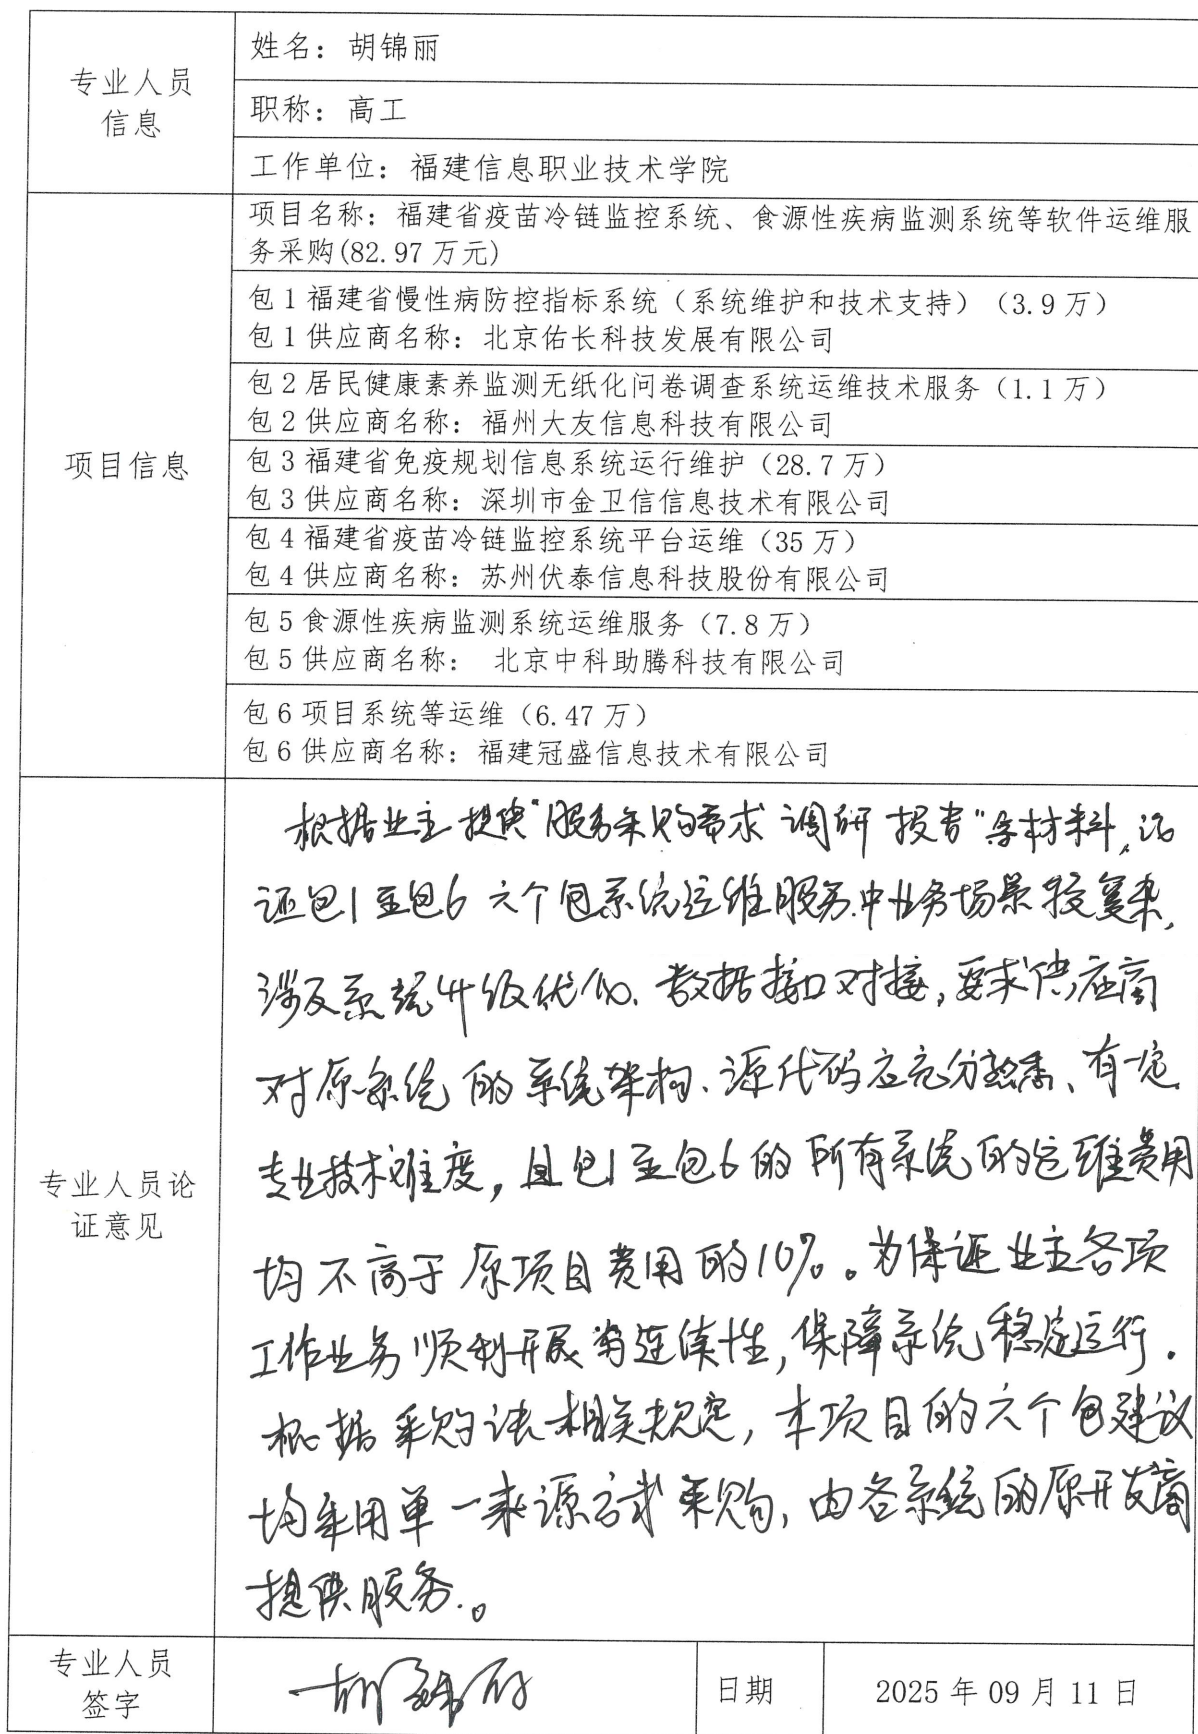 专业人员
信息
姓名：胡锦丽
职称：高工
工作单位：福建信息职业技术学院
项目信息
项目名称：福建省疫苗冷链监控系统、食源性疾病监测系统等软件运维服
务采购(82.97万元)
包1福建省慢性病防控指标系统（系统维护和技术支持）（3.9万）
包1供应商名称：北京佑长科技发展有限公司
包2居民健康素养监测无纸化问卷调查系统运维技术服务（1.1万）
包2供应商名称：福州大友信息科技有限公司
包3福建省免疫规划信息系统运行维护（28.7万）
包3供应商名称：深圳市金卫信信息技术有限公司
包4福建省疫苗冷链监控系统平台运维（35万）
包4供应商名称：苏州伏泰信息科技股份有限公司
包5食源性疾病监测系统运维服务（7.8万）
包5供应商名称： 北京中科助腾科技有限公司
包6项目系统等运维（6.47万）
包6供应商名称：福建冠盛信息技术有限公司
专业人员论
证意见
根据业主提供"服务采购需求调研报告"等材料，论
证包1至包6六个包系统运维服务中业务场景较复杂，
涉及系统升级优化、数据接口对接，要求供应商
对原系统的系统架构、源代码应充分熟悉、有一定
专业技术难度，且包1至包6的所有系统的运维费用
均不高于原项目费用的10%。为保证业主各项
工作业务顺利开展的连续性，保障系统稳定运行。
根据采购法相关规定，本项目的六个包建议
均采用单一来源方式采购，由各系统的原开发商
提供服务。
专业人员
签字
胡锦丽
日期
2025年09月11日